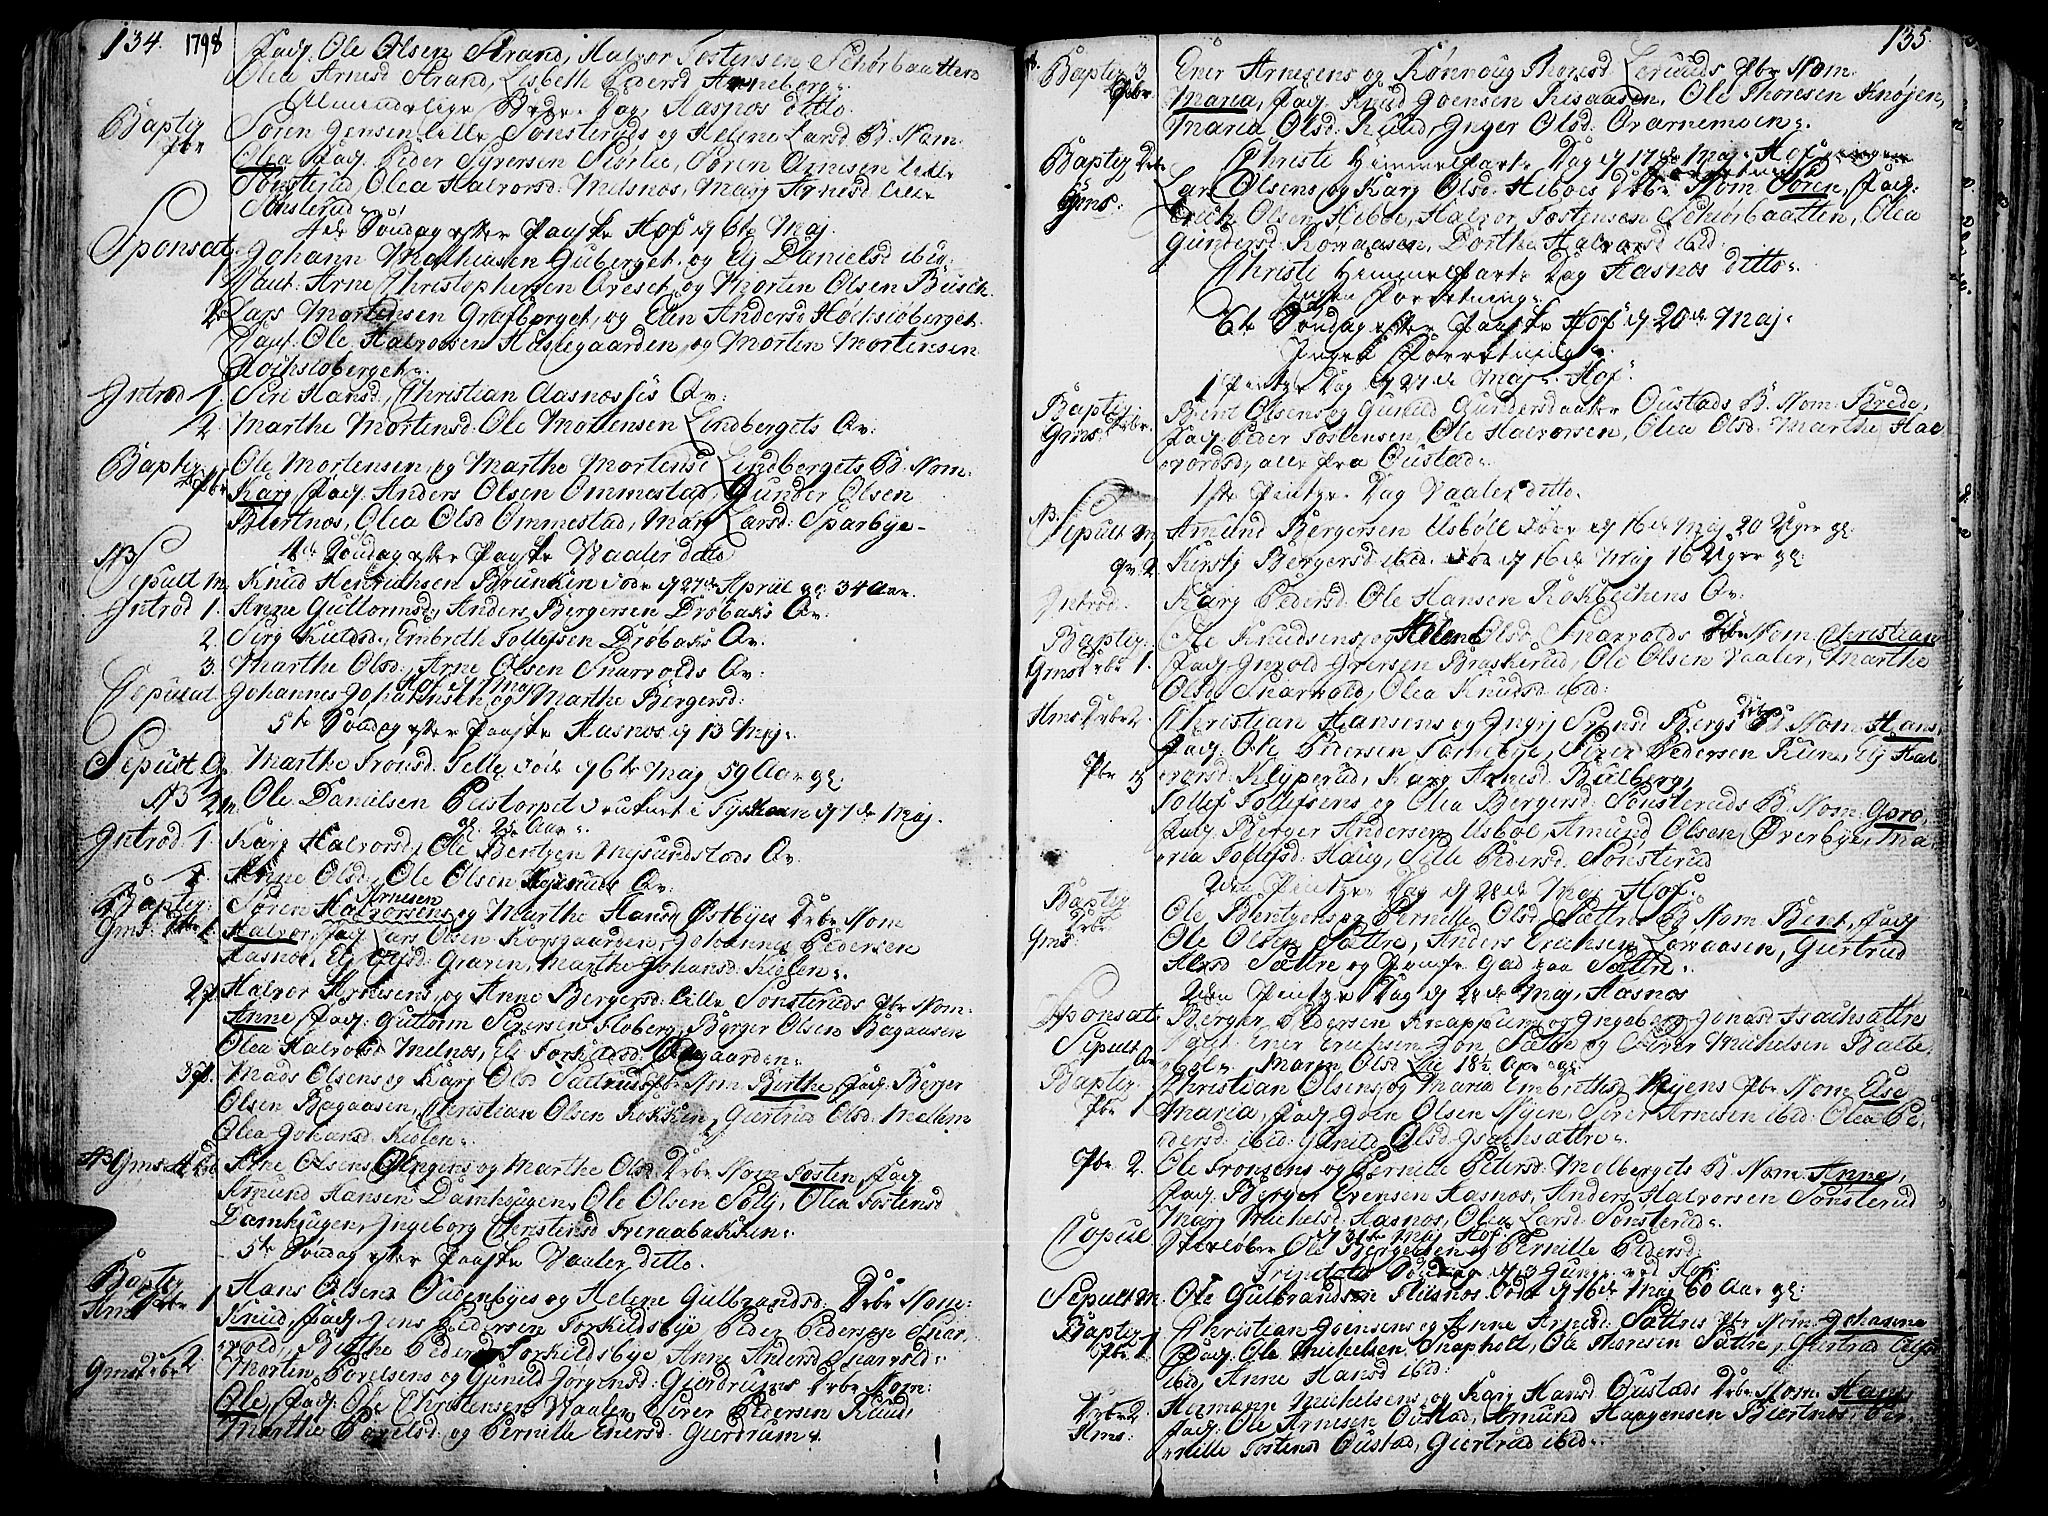 134. 1798
Fadg. Ole Olsen Strand, Halvor Tostensen Schiørbaatten
Olea Arnesd Strand, Lisbeth Pedersd Arneberg.
Almindelige Bede Dag, Aasnæs ditto.
Baptiz Søren Jensen lille Sønsteruds og Helene Larsd B. Nom:
Olea Fadg. Peder Syversen Siørlie, Søren Arnesen lille
Sønsterud, Olea Halvorsd: Melnæs, Marj Arnesd lille
Sønsterud
4de Søndag efter Paaske Hof d 6te Maj.
Sponsat. Johann Mathiasen Guberget og Elj Danielsd ibid.
Caut: Arne Christophersen Øreset, og Morten Olsen Busch
2. Lars Mortensen Grafberget, og Elen Andersd Hochsiøberget.
Caut: Ole Halvorsen Haslegaarden, og Morten Mortensen
Hochsiøberget.
Introd 1. Siri Hansd, Christian Aasnæsses Qv:
2. Marthe Mortensd: Ole Mortensen Lindbergets Qv:
Baptiz Ole Mortensen, og Marthe Mortensd Lindbergets B. Nom.
Karj, Fadg. Anders Olsen Ommestad, Gunder Olsen
Biertnæs, Olea Olsd Ommestad, Marj Larsd: Sparbye
4de Søndag efter Paaske Vaaler ditto
NB
Sepult m. Knud Henrichsen Brunken døde d 27de April gl: 34 Aar.
Introd 1. Anne Guttormsd, Anders Bergersen Drøbaks Qv:
2. Sirj Kieldsd: Embreth Tollefsen Drøbaks Qv:
3. Marthe Olsd: Arne Olsen Snarvolds Qv:
Copulat Johannes Johannesen og Marthe Bergersd:
5te Søndag efter Paaske Aasnæs d 13 Maj.
Sepult Q. Marthe Tronsd. Selle døde d 6te Maj 59 Aar gl:
NB 2 m. Ole Danielsen Peistorpet druknet i Tyskaaen d 7de Maj.
gl. 25 Aar.
Introd. 1. Karj Halvorsd, Ole Bentzen Mysundstads Qv.
2 Anne Olsd, Ole Olsen Qv:
Arnesen
Baptiz: Søren Halvorsens og Marthe Hansd Østbyes Drbr Nom
Gms: Halvor, Fadg Lars Olsen Korsgaarden, Johannes Pedersen
Aasnæs, Elj Graven, Marthe Johansd: Kiølen.
2 Halvor Arnesens, og Anne Bergersd: lille Sønsteruds Pbr Nom:
Anne, Fadg: Guttorm Syversen Floberg, Byrger Olsen Bagaasen
Olea Halvorsd Melnæs, Elj Torkildsd:
3 Mads Olsens og Karj Olsd Sætrus Pbr Nom Berthe, Fadg: Berger
Olsen Bagaasen, Christian Olsen Kokken, Giertrud Olsd: Mellem
Olea Johansd: Kiølen.
NB Gms Arne Olsens og Marthe Olsd Drbr Nom: Tosten, Fadg.
Amund Hansen Damhaugen, Ole Olsen Sølj, Olea Tostensd
Damhaugen, Ingeborg Christensd Freraabakken.
5te Søndag efter Paaske Vaaler ditto.
Baptiz 1 Hans Olsens Oudenbyes og Helene Gulbrandsd: Drbr Nom:
Hms Knud, Fadg. Jens Pedersen Torkildsbye, Peder Pedersen Snar
vold, Birthe Pedersd Torkildsbye, Anne Andersd Snarvold.
Gms Drbr 2. Morten Povelsens og Gunild Jørgensd: Gierdrums Drbr Nom:
Ole, Fadg. Ole Christensen Vaaler, Siver Pedersen Kuud,
Marthe Povelsd: og Pernille Enersd: Gierdrum.
135.
Baptiz 3 Ener Arnesens og Rønnoug Thoresd. Leruuds Pbr Nom.
Maria, Fadg. Knud Joensen Risaasen, Ole Thoresen Knøjen,
Maria Olsd: Kuud, Inger Olsd: Ovarnemoen.
Christi Himmelfarts Dag d 17de Maj Hof
Baptiz Drbr Lars Olsens og Karj Olsd. Heboes Drbr Nom Søren, Fadg:
Gms: Erich Olsen Heboe, Halvor Tostensen Schiørbaatten, Olea
Gundersd: Rovaasen, Dorthe Halvorsd ibid:
Christi Himmelfarts Dag Aasnæs ditto.
Ingen Forretning.
6te Søndag efter Paaske Hof d 20de Maj.
Ingen Forretning.
1 Pintze Dag d 27de Maj Hof.
Baptiz Bent Olsens og Gunild Gundersdaatter Oustads B. Nom: Brede,
Gms: Drbr. Fadg: Peder Tostensen, Ole Halvorsen, Olea Olsd. Marthe Hal
vorsd, alle fra Oustad.
1ste Pintze Dag Vaaler ditto.
NB.
Sepult Amund Bergersen Usböll døde d 16de Maj 20 Uger gl:
qv. 2. Kirstj Bergersd ibid. død d 16de Maj 16 Uger gl:
Introd. Karj Pedersd: Ole Hansen Kokbeckens Qv.
Baptiz. Ole Knudsens, og Helene Olsd Snarvolds Drbr Nom: Christian
Gms Drbr 1. Fadg. Ingvold Iversen Braskerud, Ole Olsen Vaaler, Marthe
Olsd. Snarvold, Olea Knudsd: ibid:
Hms Drbr 2. Christian Hansens og Ingrj Svensd Bergs Drbr Nom: Hans,
Fadg: Ole Pedersen Tomtebye, Siver Pedersen Kuud, Elj Hal
vorsd: Klyperud, Karj Arnesd Bulberg,
Pbr 3 Tollef Tollefsens og Olea Bergersd: Sønsteruds B. Nom: Goro,
Fadg. Berger Andersen Usböl, Amund Olsen Øverbye, Ma
ria Tollefsd: Haug, Sille Pedersd: Sønsterud
2den Pintze Dag d 28de Maj Hof.
Baptiz Ole Bentzens og Pernille Olsd. Sættre B. Nom. Bent, Fadg
Drbr Ole Olsen Sættre, Anders Erichsen Lovaasen, Giertrud
Gms: Alfsd Sættre og Gad paa Sættre.
2den Pintze Dag d 28de Maj, Aasnæs
Sponsat. Berger Pedersen Knappum og Ingeborg Jonasd Isachsættre
Caut: Ener Erichsen Sættre og Siver Michelsen Baltebøl.
Sepult Q. Maren Olsd Lie 18½ Aar gl:
Baptiz Christian Olsens og Maria Embrethsd Myens Pbr Nom: Else
Pbr 1. Maria, Fadg. Joen Olsen Myen, Siver Arnesen ibid: Olea Pe,
dersd: ibid: Gunild Olsd: Isachsættre.
Pbr 2. Ole Tronsens og Pernille Pedersd: Melbergets B. Nom. Anne,
Fadg. Berger Evensen Aasnæs, Anders Halvorsen Sønsterud
Marj Michelsd: Aasnæs, Olea Larsd: Sønsterud.
d 31te Maj Hof:
Copul Ole Bergersen og Pernille Pedersd:
Trinitatis Søndag d 3 Junii ved Hof:
Sepult m. Ole Gulbrandsen Fliisnæs døde d 16de Maj 60 Aar gl:
Baptiz 1 Christian Joensens og Anne Arnesd: Sættres Pbr Nom: Johanne
Pbr. Fadg. Ole Michelsen Snapholt, Ole Thoresen Sættre, Giertrud Alfsd
ibid, Anne Hansd ibid:
Drbr 2. Hermann Michelsens og Karj Hansd Oustads Drbr Nom. Hans
Hms: Fadg. Ole Arnesen Oustad, Amund Haagensen Biertnæs, Per
nille Tostensd Oustad, Giertrud ibid.